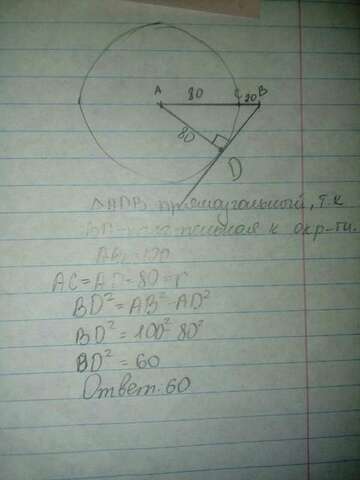 A 80 C 20 B
80
D
△ADB-прямоугольный, т.к
BD-касательная к окр-ти.
AB=100
AC=AD=80=r
BD²=AB²-AD²
BD²=100²-80²
BD²=60
Ответ: 60